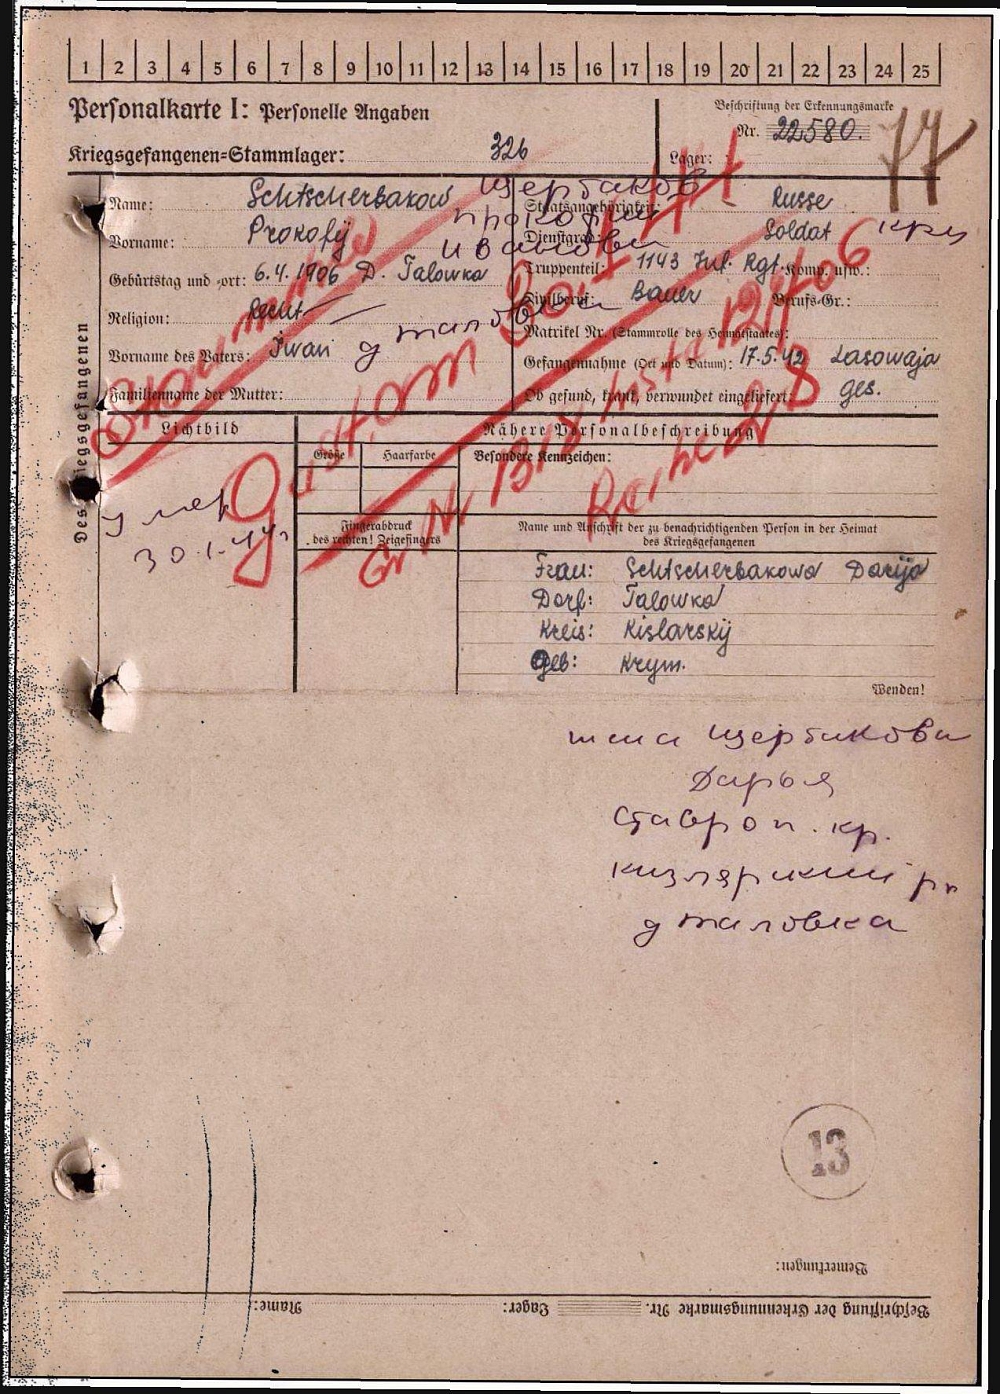 1 2 3 4 5 6 7 8 9 10 11 12 13 14 15 16 17 18 19 20 21 22 23 24 25
Personalkarte I: Personelle Angaben
Beschriftung der Erkennungsmarke
Nr. 22580.
77
Kriegsgefangenen-Stammlager: 326
Lager:
Des Kriegsgefangenen
Name: Schtscherbakow
Щербаков
Vorname: Prokofij
Прокофий
Иванови
Geburtstag und -ort: 6.4.1906 D. Talowka
Religion: Recht
д таловка
Vorname des Vaters: Iwan
Familienname der Mutter:
Staatsangehörigkeit: Russe
Dienstgrad: Soldat
Truppenteil: 1143 Inf. Rgt. Komp. usw.:
Zivilberuf: Bauer Berufs-Gr.:
Matrikel Nr. (Stammrolle des Heimatstaates):
Gefangennahme (Ort und Datum): 17.5.42 Lasowaja
Ob gesund, krank, verwundet eingeliefert: ges.
30.1.44
Gr Nr
Reihe 28
Lichtbild
Nähere Personalbeschreibung
Größe
Haarfarbe
Besondere Kennzeichen:
умер
30.1.44г
Fingerabdruck
des rechten! Zeigefingers
Name und Anschrift der zu benachrichtigenden Person in der Heimat
des Kriegsgefangenen
Frau: Schtscherbakowa Darija
Dorf: Talowka
Kreis: Kislarskij
Geb: Krym.
Wenden!
жена Щербакова
Дарья
Ставроп. кр.
кизлярский рн
д таловка
13
Bemerkungen:
Beschriftung der Erkennungsmarke Nr. Lager: Name: